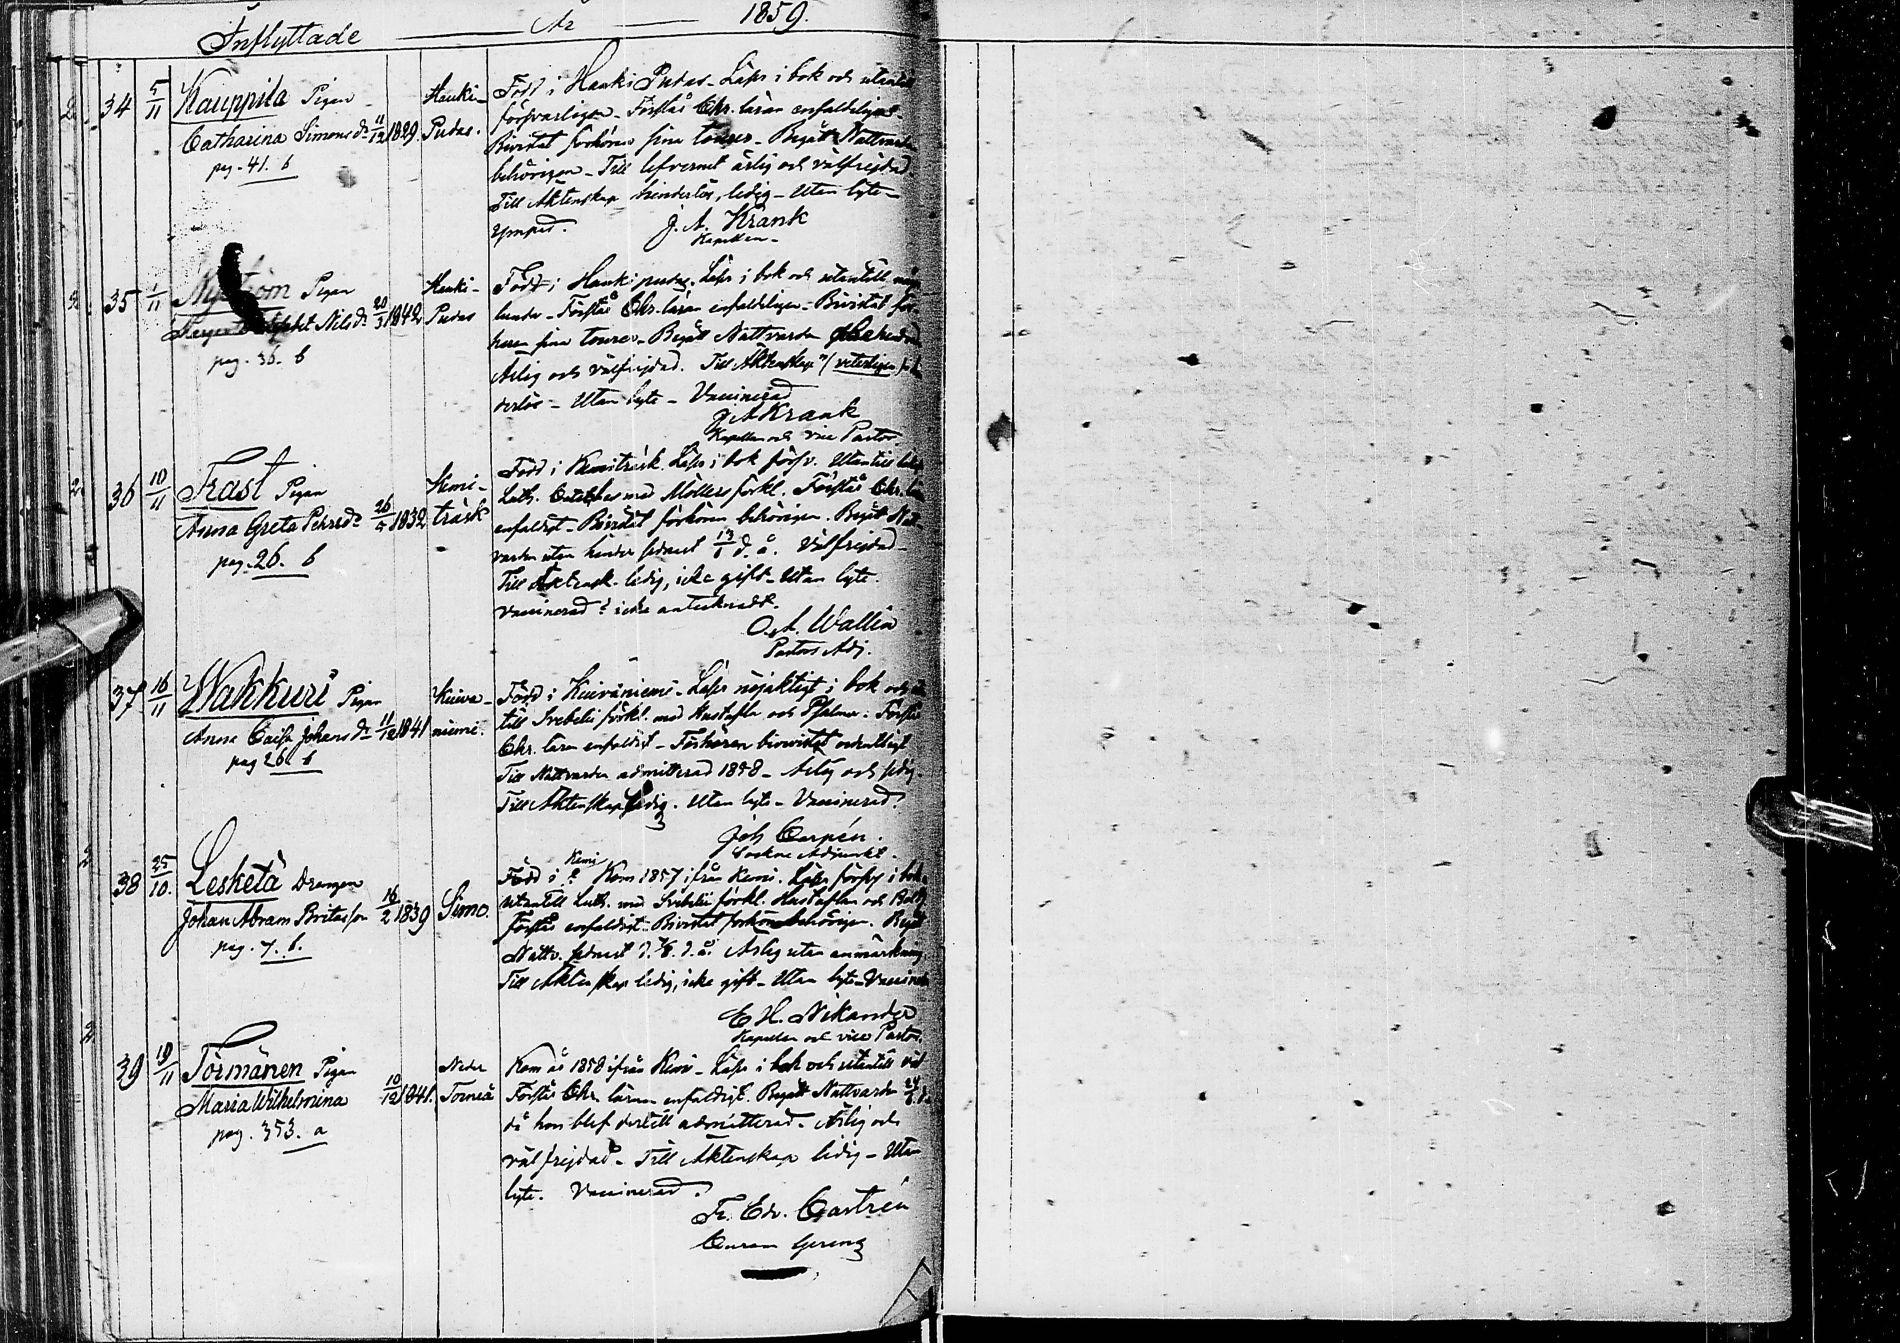 Inflyttade År 1859.
2 34 5/11 Kauppila Pigan
Catharina Simonsdr 11/12 1829
pag. 41. b
Hauki-
Pudas.
Född i Hauki Pudas. Läser i bok och utantill
försvarligen. Förstår Chr. läran enfaldeligen.
Bivistat förhören sina tourer. Begått Nattvarden
behörigen. Till lefvernet ärlig och välfrejdad.
Till Äktenskap hinderlös, ledig. Utan lyte.
Ympad. J. A. Krank
Kapellan.
2. 35 1/11 Nyström Pigan
Nilsdr 20/3 1842
pag. 36. b
Hauki-
Pudas
Född i Haukipudas. Läser i bok och utantill
Förstår Chr. läran enfaldeligen. Bivistat för-
hören sina tourer. Begått Nattvarden
Ärlig och välfrejdad. Till Äktenskap veterligen hin-
derlös. Utan lyte. Vaccinerad
J A Krank
Kapellan och vice Pastor.
2. 36 10/11 Frast Pigan
Anna Greta Pehrsdr 26/5 1832
pag. 26. b
Kemi-
träsk
Född i Kemiträsk. Läser i bok förssv. Utantill
Luth. Cateches med Möllers förkl. Förstår Chr. läran
enfaldigt. Bivistat förhören behörigen. Begått Natt-
varden utan hinder sednast 13/6 d. å. Välfrejdad.
Till Äktensk. ledig, icke gift. Utan lyte.
Vaccinerad? icke antecknadt.
O. A. Wallin
Pastors Adj.
37 16/11 Wakkuri Pigan
Anna Caisa Johansdr 11/12 1841
pag 26. b
Kuiva-
niemi.
Född i Kuivaniemi. Läser nöjaktigt i bok och
till Svebelii förkl. med Hustafla och Psalmer. Förstår
Chr. läran enfaldigt. Förhören bivistat ordentligt
Till Nattvarden admitterad 1858. Ärlig och sedig.
Till Äktenskap ledig. Utan lyte. Vaccinerad.
Joh Carpén.
Sockne Adjunkt.
2 38 25/10. Lesketä Drängen
Johan Abram Britasson 16/2 1839
pag. 7. b.
Simo.
Kemi
Född i ? Kom 1857 ifrån Kemi. Läser försv i bok.
utantill Luth. med Svebelii förkl. Hustaflan och
Förstår enfaldigt. Bivistat förhören behörigen. Begått
Nattv. sednast d. d.å. Ärlig utan anmärkning
Till Äktenskap ledig, icke gift. Utan lyte. Vaccinerad
E H. Nikander
Kapellan och vice Pastor.
2 39 19/11 Törmänen Pigan
Maria Wilhelmina 10/12 1841.
pag. 353. a
Neder
Torneå
Kom år 1858 ifrån Kemi. Läser i bok och utantill väl
Förstår Chr. läran enfaldigt. Begått Nattvarden
då hon blef dertill admitterad. Ärlig och
välfrejdad. Till Äktenskap ledig. Utan
lyte. Vaccinerad.
Fr. Edv. Castrén
Curam Gerens